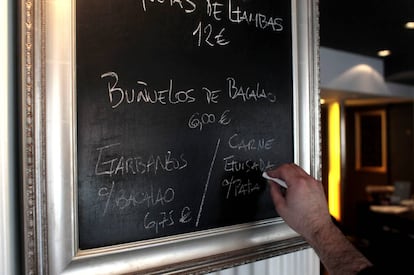 DE GAMBAS
12€
BUÑUELOS DE BACALAO
6,00€
GARBANZOS
c/BACALAO
6,75€
CARNE
GUISADA
c/PATATA